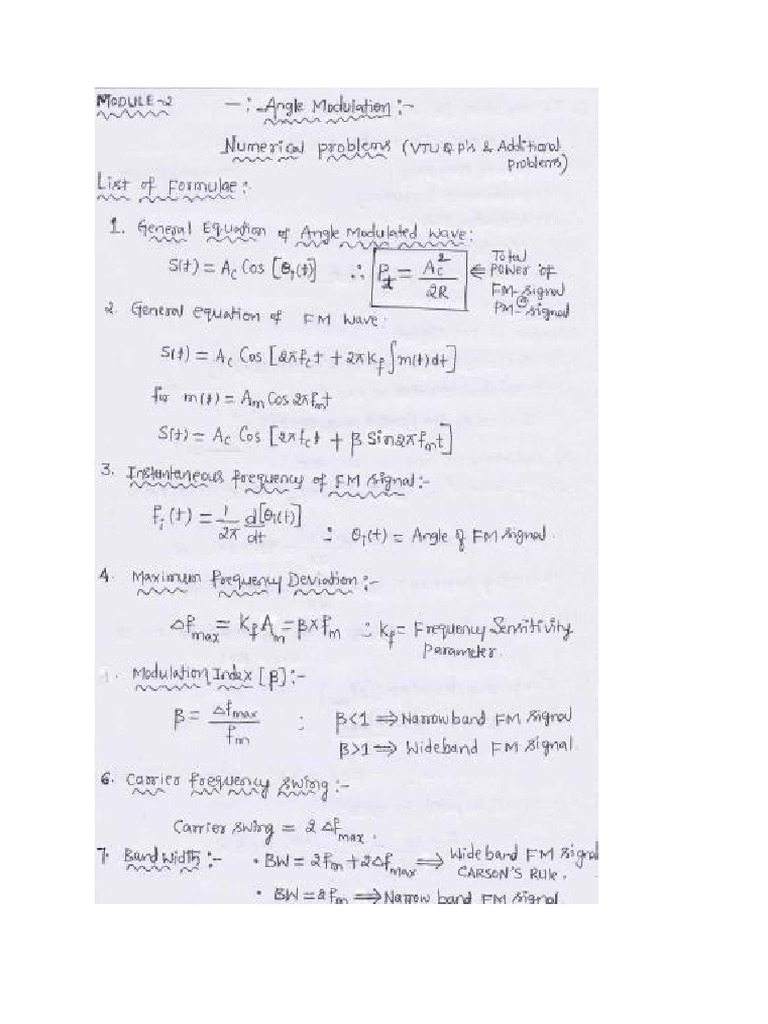 MODULE-2 -: Angle Modulation :-
Numerical problems (VTU Q.P's & Additional problems)
List of Formulae:-
1. General Equation of Angle Modulated Wave:
S(t) = Ac Cos [θi(t)] ∴ Pt = Ac²/2R ⇐ Total Power of FM-signal (or) PM-signal
2. General equation of FM Wave:
S(t) = Ac Cos [2πfct + 2πKf∫m(t)dt]
for m(t) = Am Cos 2πfmt
S(t) = Ac Cos [2πfct + β Sin 2πfmt]
3. Instantaneous frequency of FM signal:-
fi(t) = 1/2π d[θi(t)]/dt ∴ θi(t) = Angle of FM signal.
4. Maximum frequency Deviation:-
Δfmax = KfAm = β×fm ∴ Kf = Frequency Sensitivity Parameter.
Modulation Index [β]:-
β = Δfmax/fm ; β<1 ⇒ Narrowband FM signal
β>1 ⇒ Wideband FM signal.
6. Carrier frequency swing:-
Carrier swing = 2Δfmax.
7. Bandwidth:- • BW = 2fm + 2Δfmax ⇒ Wideband FM signal CARSON'S Rule.
• BW = 2fm ⇒ Narrow band FM signal